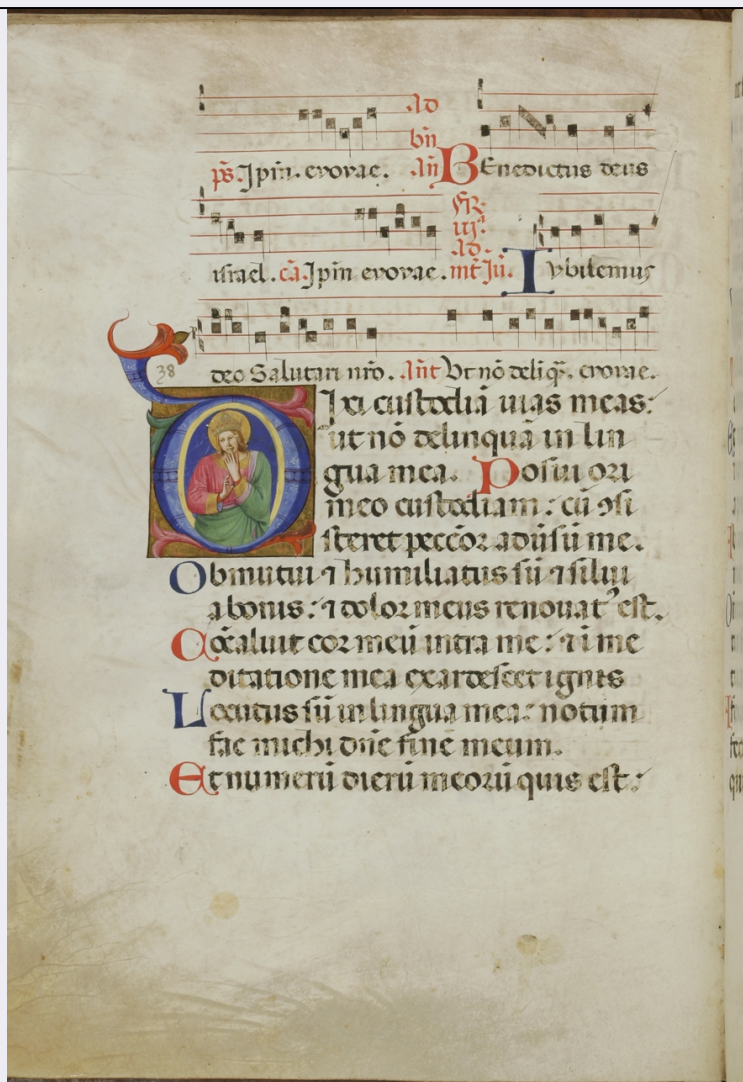 Ad
bn̄
p̄s. Ipm̄. evovae. An̄ BEnedictus deus
FR
iij.ª
Ad.
israel. cā. Ipm̄ evovae. mt̄ Iū. Iubilemus
deo Salutari nrō. Ant̄ Ut nō deliq̄. evovae.
38
DIxi custodiā uias meas:
ut nō delinquā in lin
gua mea. Posui ori
meo custodiam: cū ꝯsi
steret peccōꝛ aduͥsū me.
Obmutui ⁊ humiliatus sū ⁊ silui
a bonis: ⁊ dolor meus renouatꝰ est.
Cōcaluit coꝛ meū intra me: ⁊ ī me
ditatione mea exardescet ignis
Locutus sū in lingua mea: notum
fac michi dn̄e finē meum.
Et numerū dierū meoꝛū quis est: